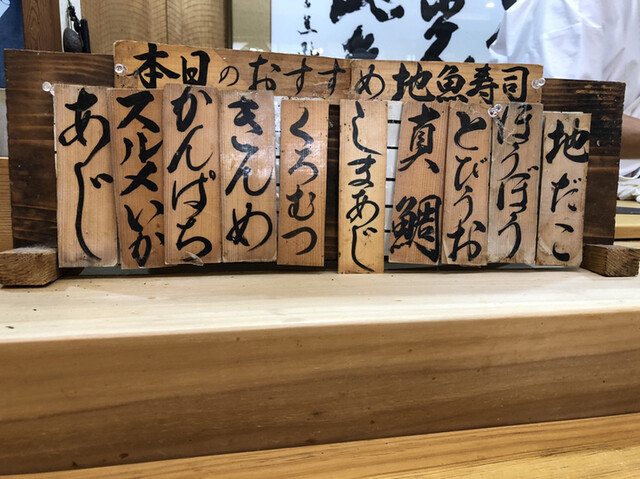 本日のおすすめ地魚寿司
地だこ
ほうぼう
とびうお
真鯛
しまあじ
くろむつ
きんめ
かんぱち
スルメいか
あじ